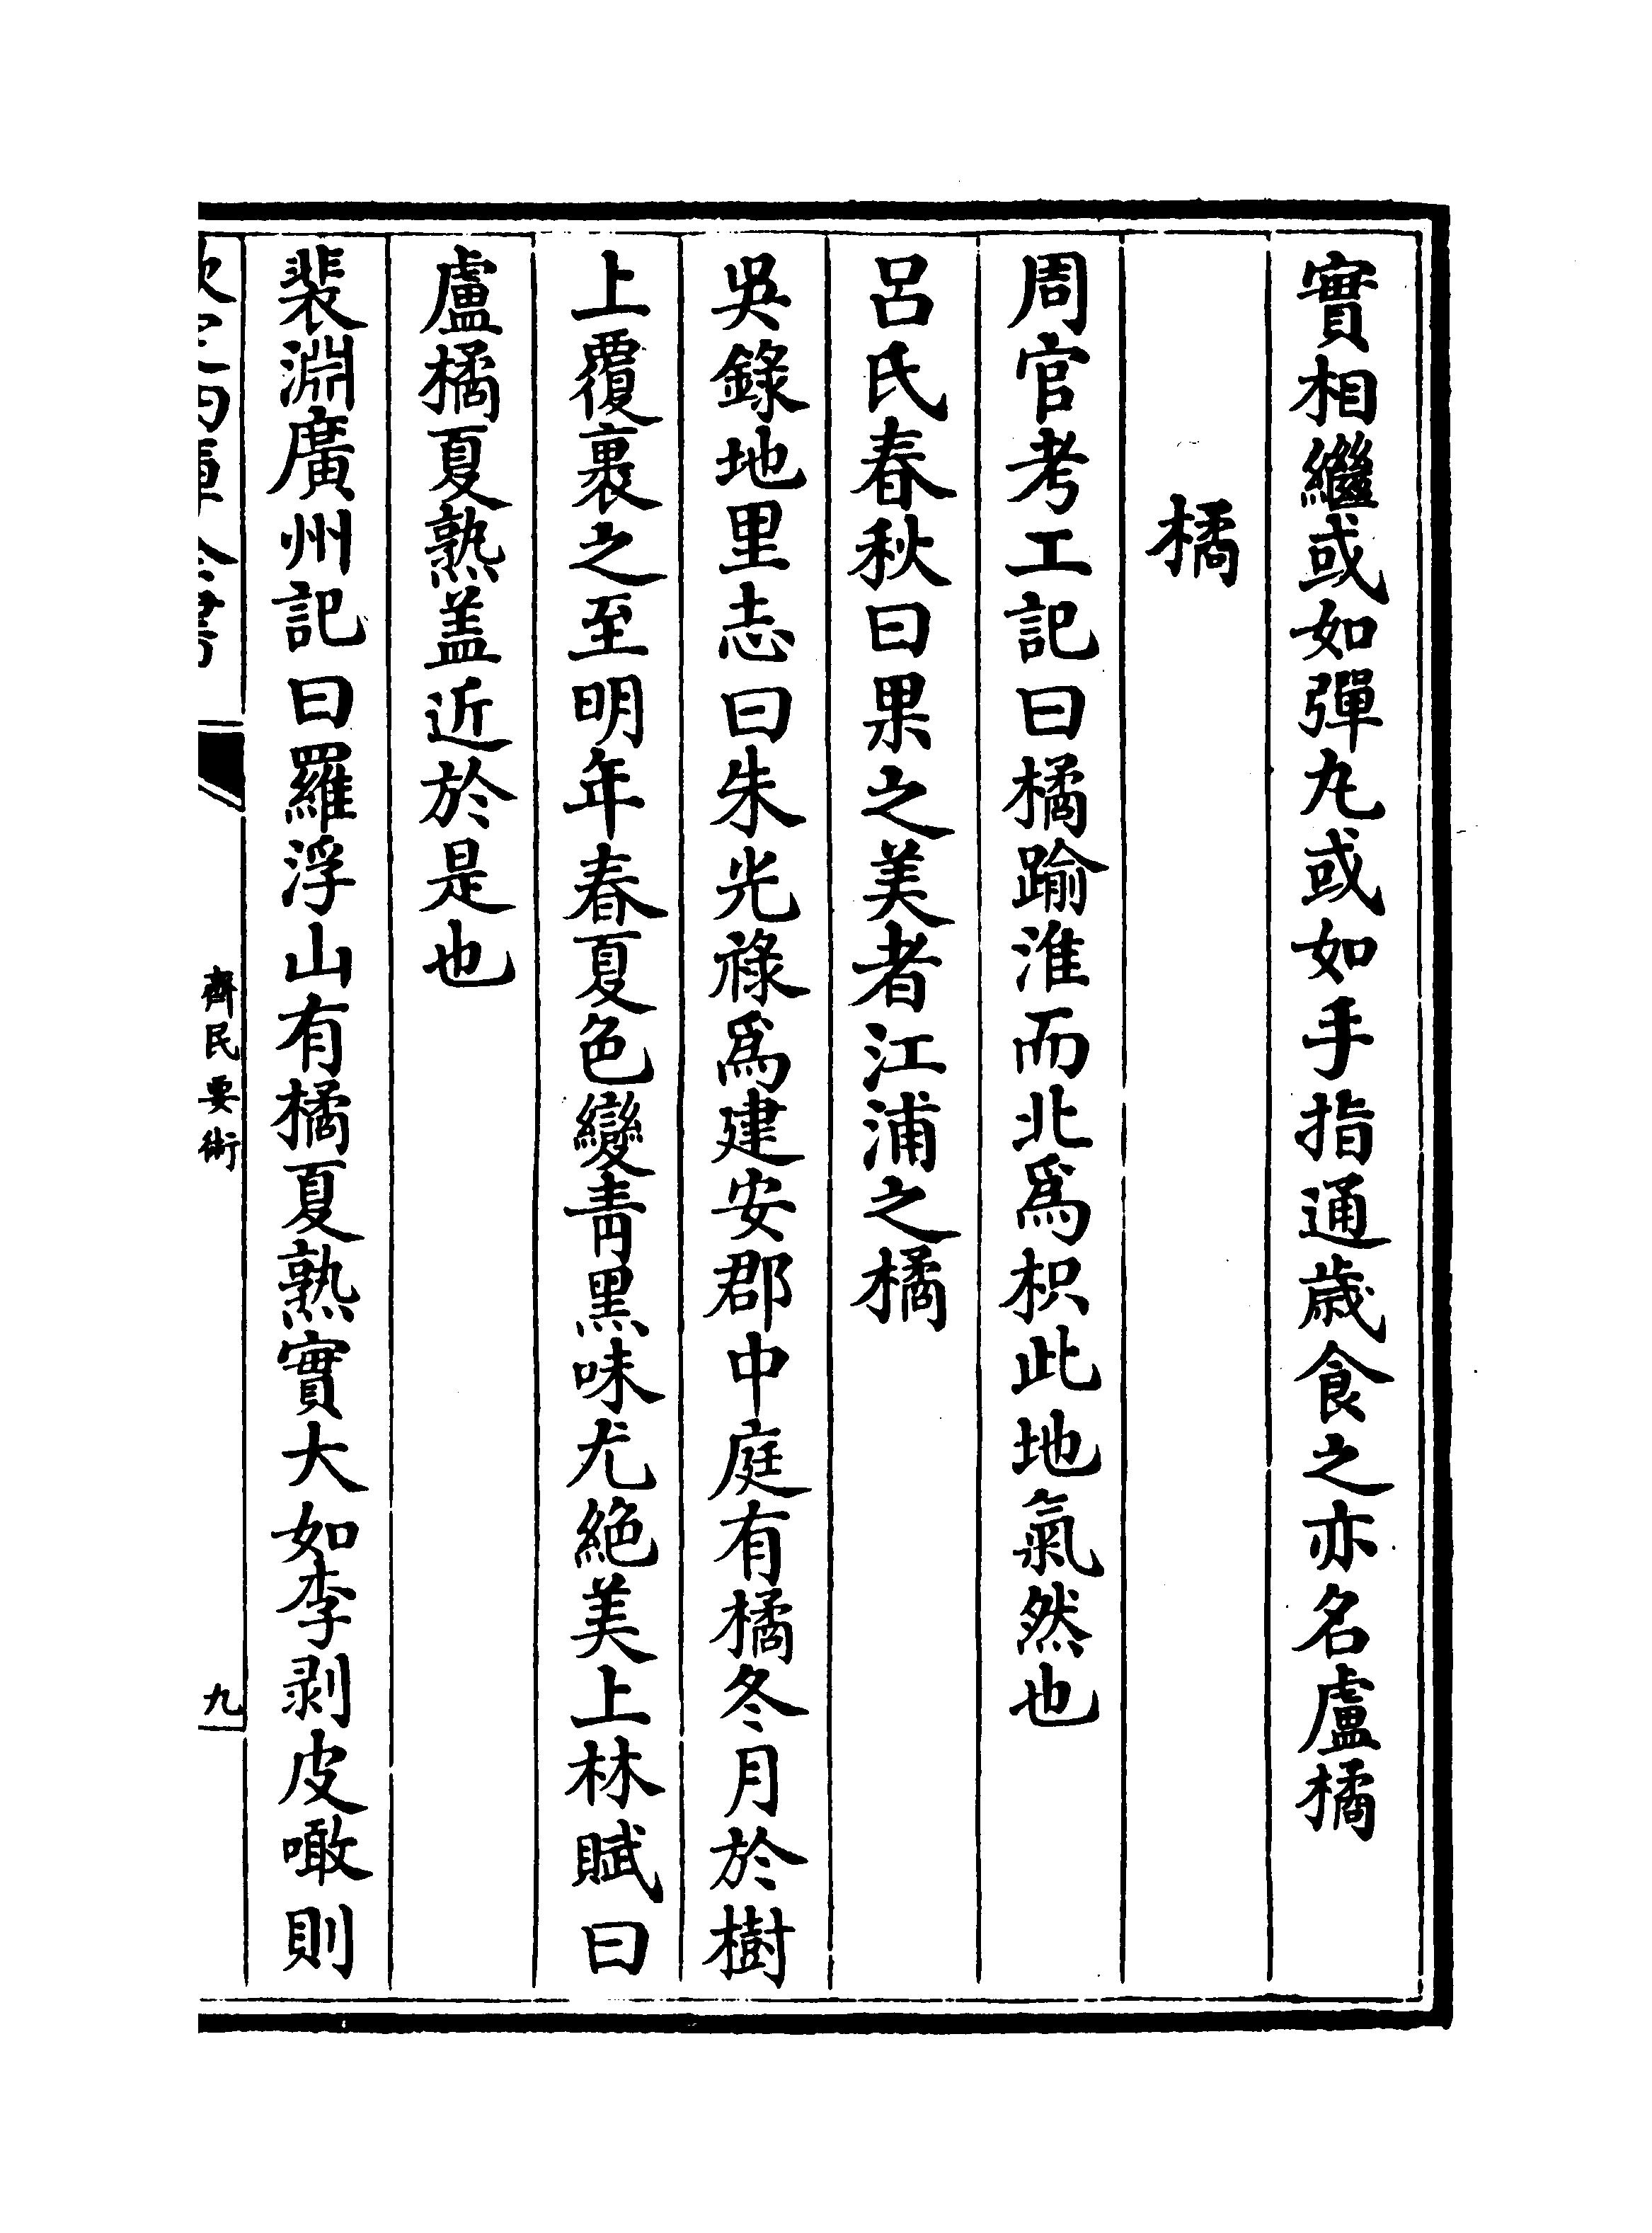 實相繼或如彈丸或如手指通歳食之亦名盧橘
橘
周官考工記曰橘踰淮而北爲枳此地氣然也
呂氏春秋曰果之美者江浦之橘
吳錄地里志曰朱光祿爲建安郡中庭有橘冬月於樹
上覆裹之至明年春夏色變青黑味尤絕美上林賦曰
盧橘夏熟盖近於是也
裴淵廣州記曰羅浮山有橘夏熟實大如李剥皮噉則
欽定四庫全書
齊民要術
九